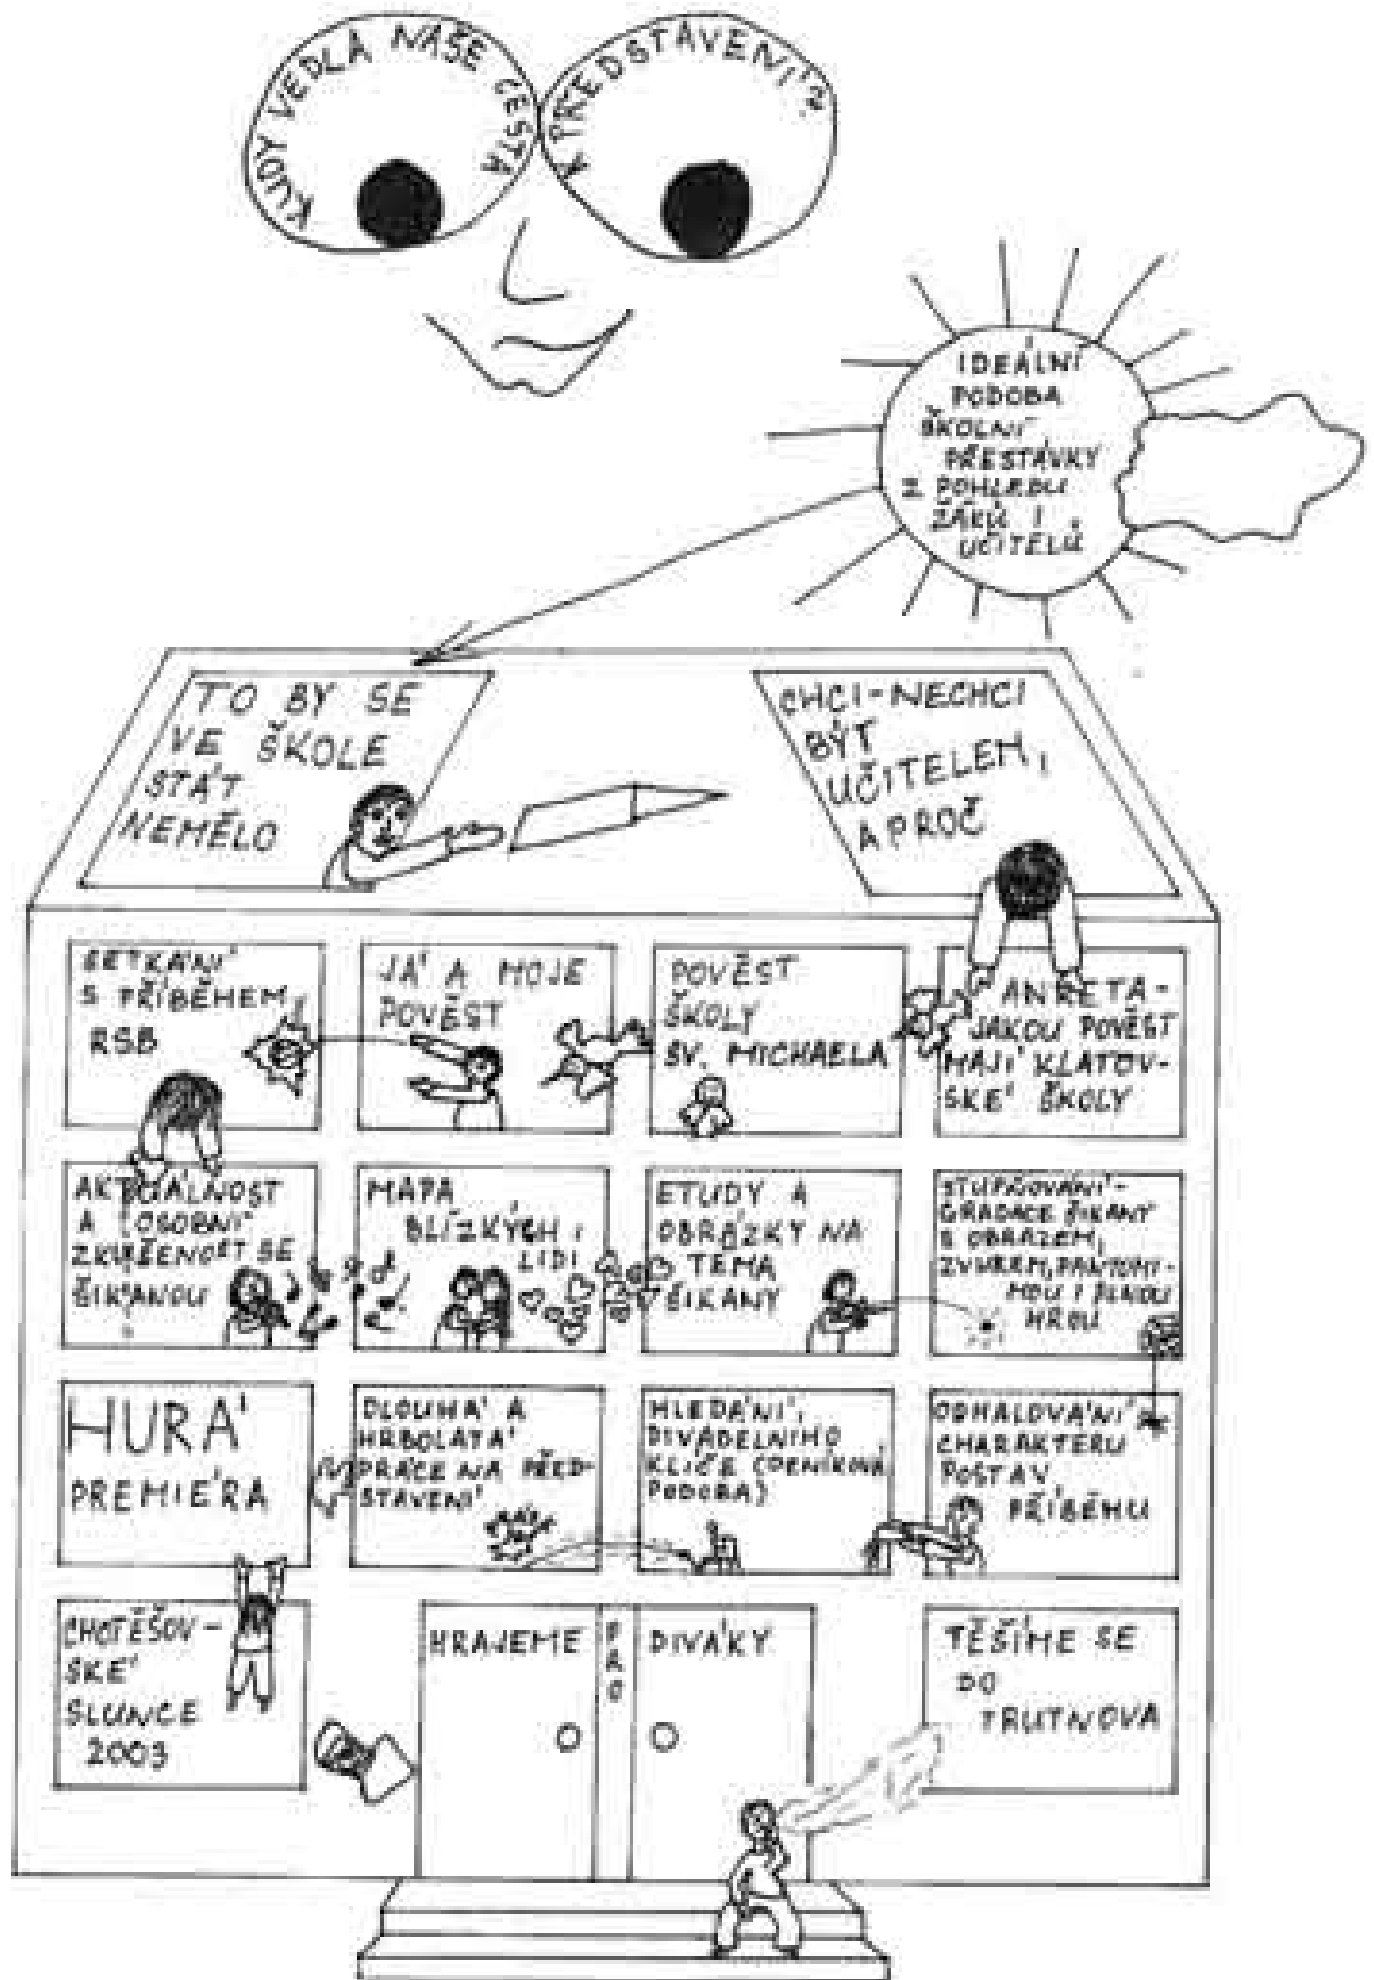 KUDY VEDLA NAŠE CESTA
K PŘEDSTAVENÍ?
IDEÁLNÍ
PODOBA
ŠKOLNÍ
PŘESTÁVKY
Z POHLEDU
ŽÁKŮ I
UČITELŮ
TO BY SE
VE ŠKOLE
STÁT
NEMĚLO
CHCI-NECHCI
BÝT
UČITELEM,
A PROČ
SETKÁNÍ
S PŘÍBĚHEM
RSB
JÁ A MOJE
POVĚST
POVĚST
ŠKOLY
SV. MICHAELA
ANKETA-
JAKOU POVĚST
MAJÍ KLATOV-
SKÉ ŠKOLY
AKTUÁLNOST
A OSOBNÍ
ZKUŠENOST SE
ŠIKANOU
MAPA
BLÍZKÝCH
LIDÍ
ETUDY A
OBRÁZKY NA
TÉMA
ŠIKANY
STUPŇOVÁNÍ-
GRADACE ŠIKANY
S OBRAZEM,
ZVUKEM, PANTOMI-
MOU I
HROU
HURÁ
PREMIÉRA
DLOUHÁ A
HRBOLATÁ
PRÁCE NA PŘED-
STAVENÍ
HLEDÁNÍ
DIVADELNÍHO
KLÍČE (DENÍKOVÁ
PODOBA)
ODHALOVÁNÍ
CHARAKTERU
POSTAV
PŘÍBĚHU
CHOTĚŠOV-
SKÉ
SLUNCE
2003
HRAJEME PRO DIVÁKY
TĚŠÍME SE
DO
TRUTNOVA